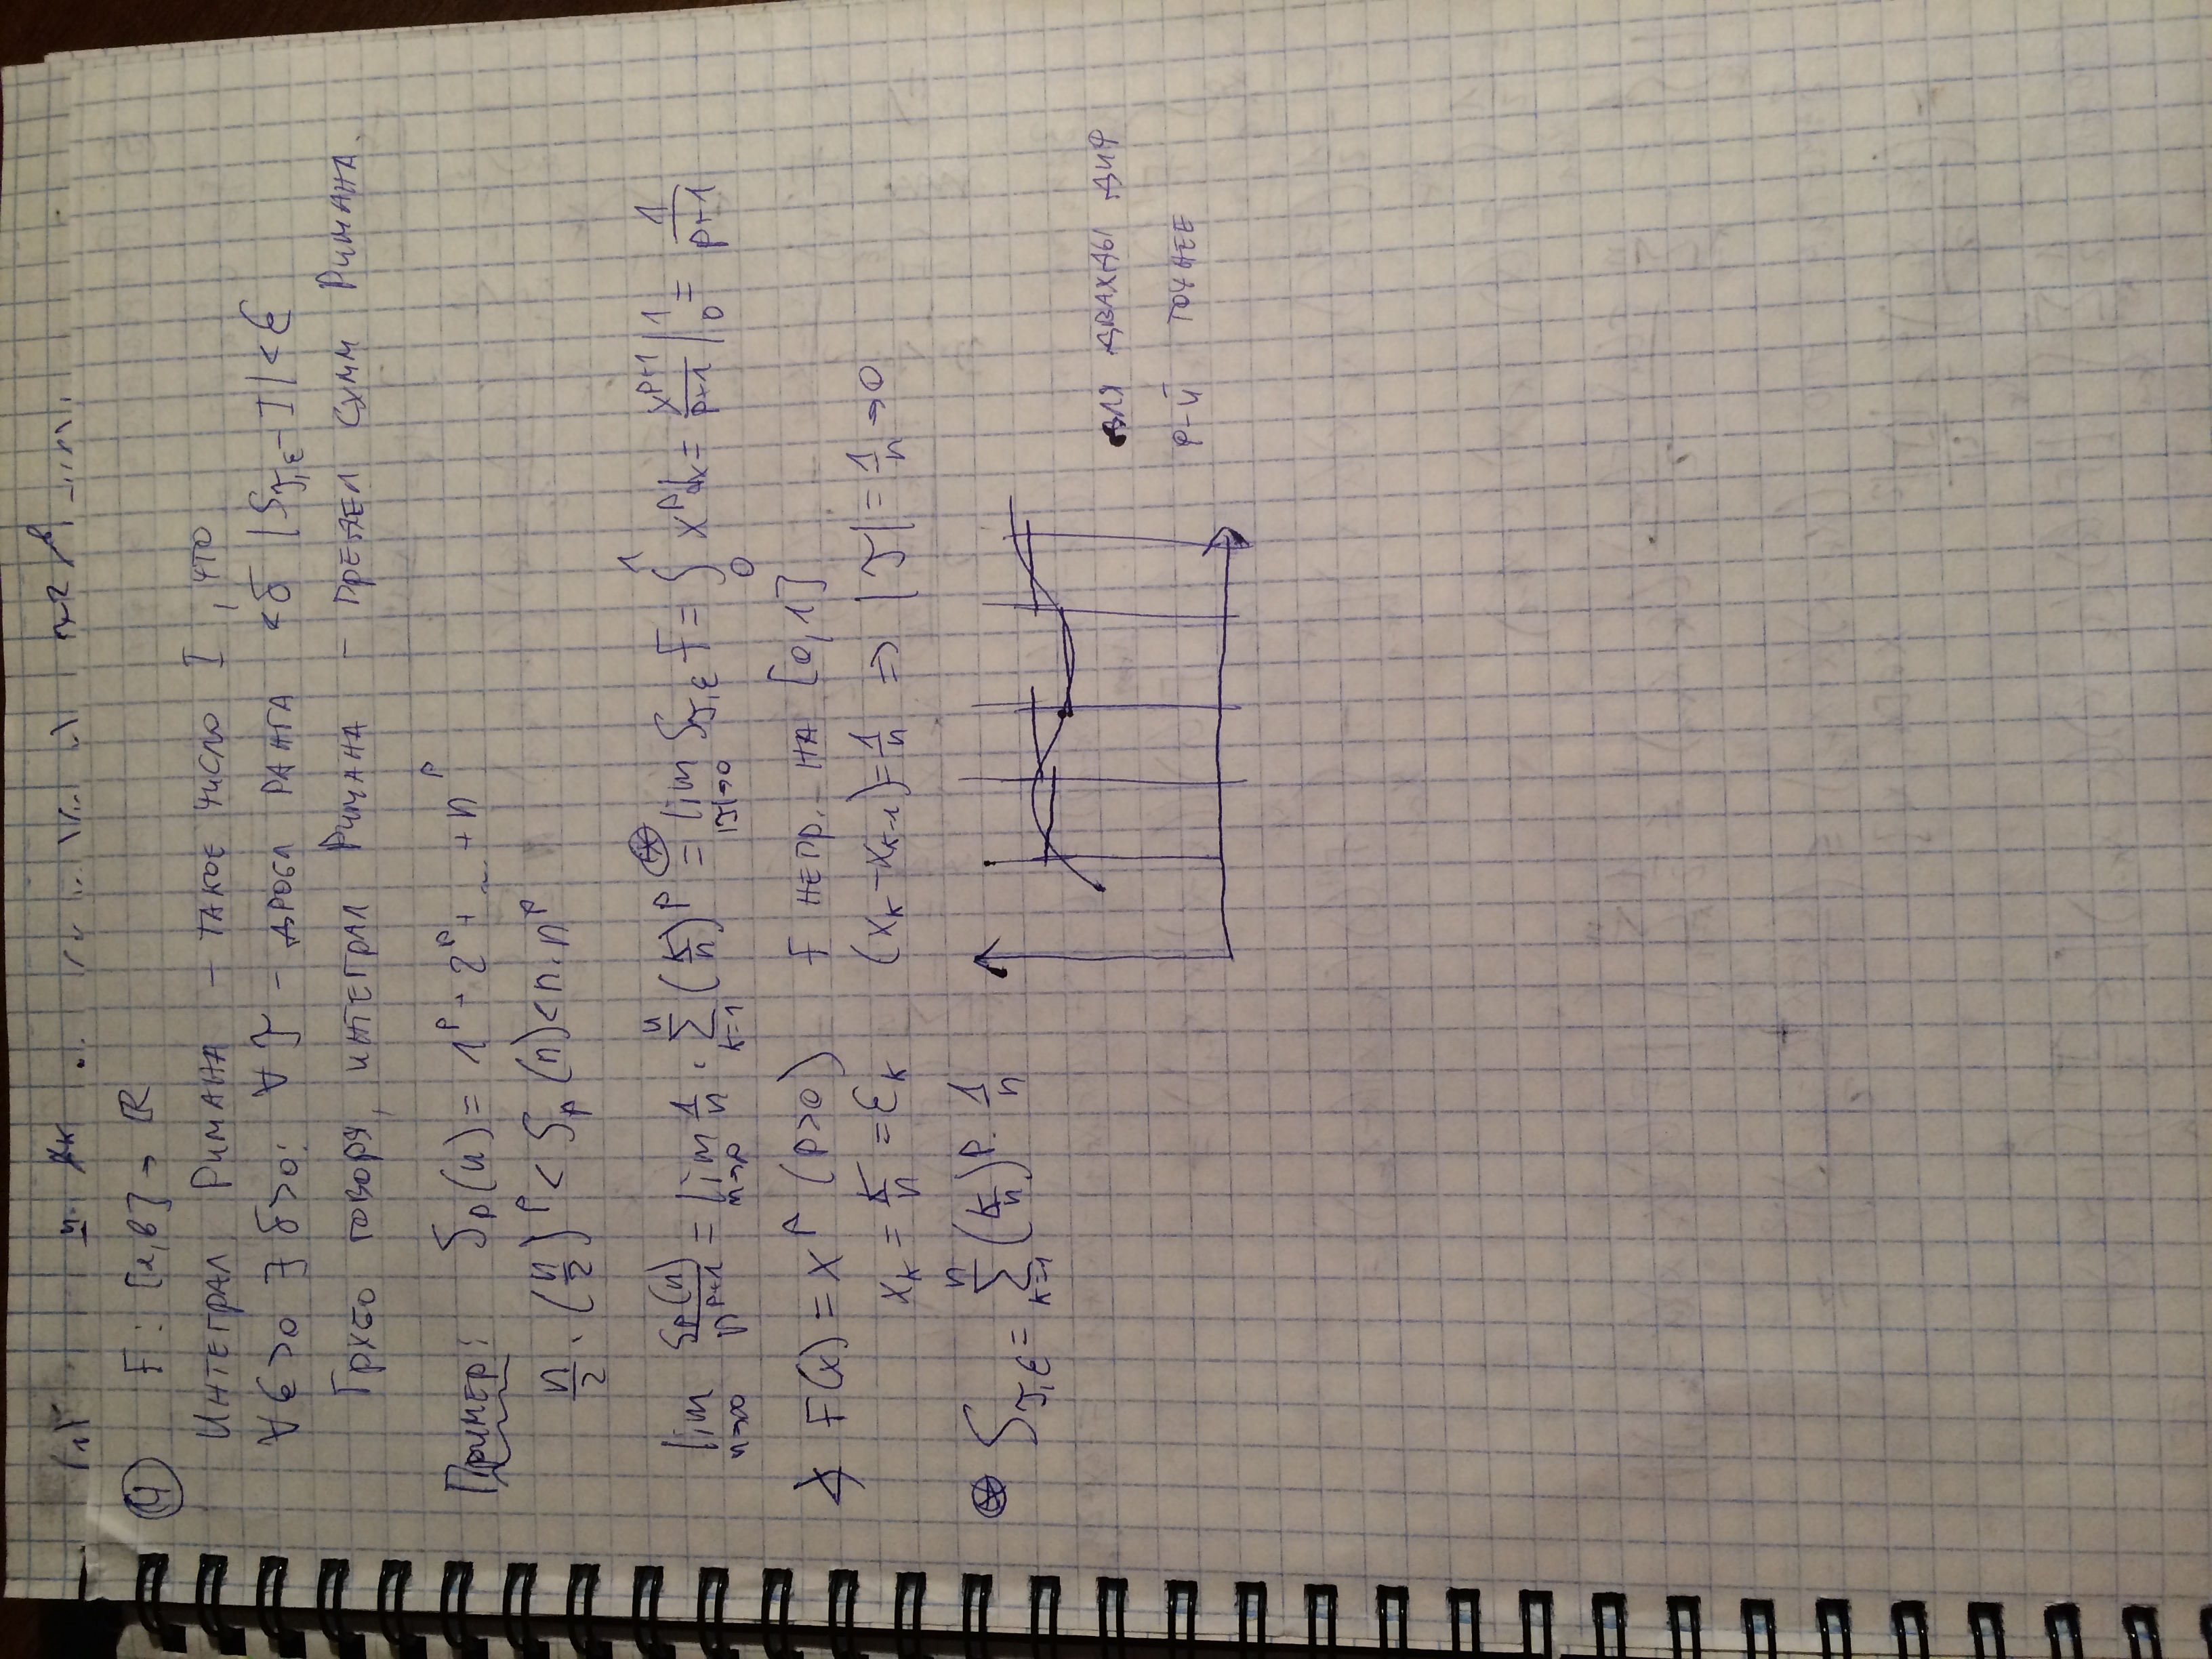 ④ F: [a,b] → ℝ
Интеграл Римана – такое число I, что
∀ε>0 ∃δ>0: ∀τ – дробл ранга <δ |S_{τ,ε} - I| < ε
Грубо говоря, интеграл Римана – предел сумм Римана.
Пример: S_p(n) = 1^p + 2^p + ... + n^p
n/2 · (n/2)^p < S_p(n) < n · n^p
lim_{n→∞} S_p(n)/n^{p+1} = lim_{n→∞} 1/n · ∑_{k=1}^{n} (k/n)^p =^⊛ lim_{|τ|→0} S_{τ,ε} F = ∫_0^1 x^p dx = x^{p+1}/(p+1) |_0^1 = 1/(p+1)
F(x) = x^p (p>0) F непр. на [0,1]
x_k = k/n = ε_k (x_k - x_{k-1}) = 1/n ⇒ |τ| = 1/n → 0
⊛ S_{τ,ε} = ∑_{k=1}^{n} (k/n)^p · 1/n
для дважды диф
ф-й точнее